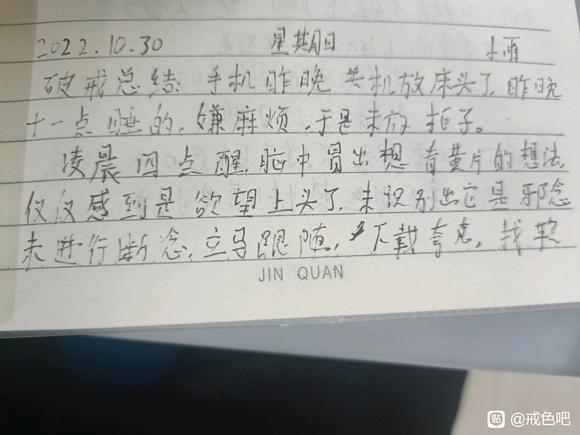 2022.10.30 星期日 小雨
破戒总结 手机昨晚关机放床头了,昨晚
十一点睡的,嫌麻烦,于是未放柜子。
凌晨四点醒,脑中冒出想看黄片的想法,
仅仅感到是欲望上头了,未识别出它是邪念
未进行断念,立马跟随,下载夸克,找软
JIN QUAN
贴 @戒色吧